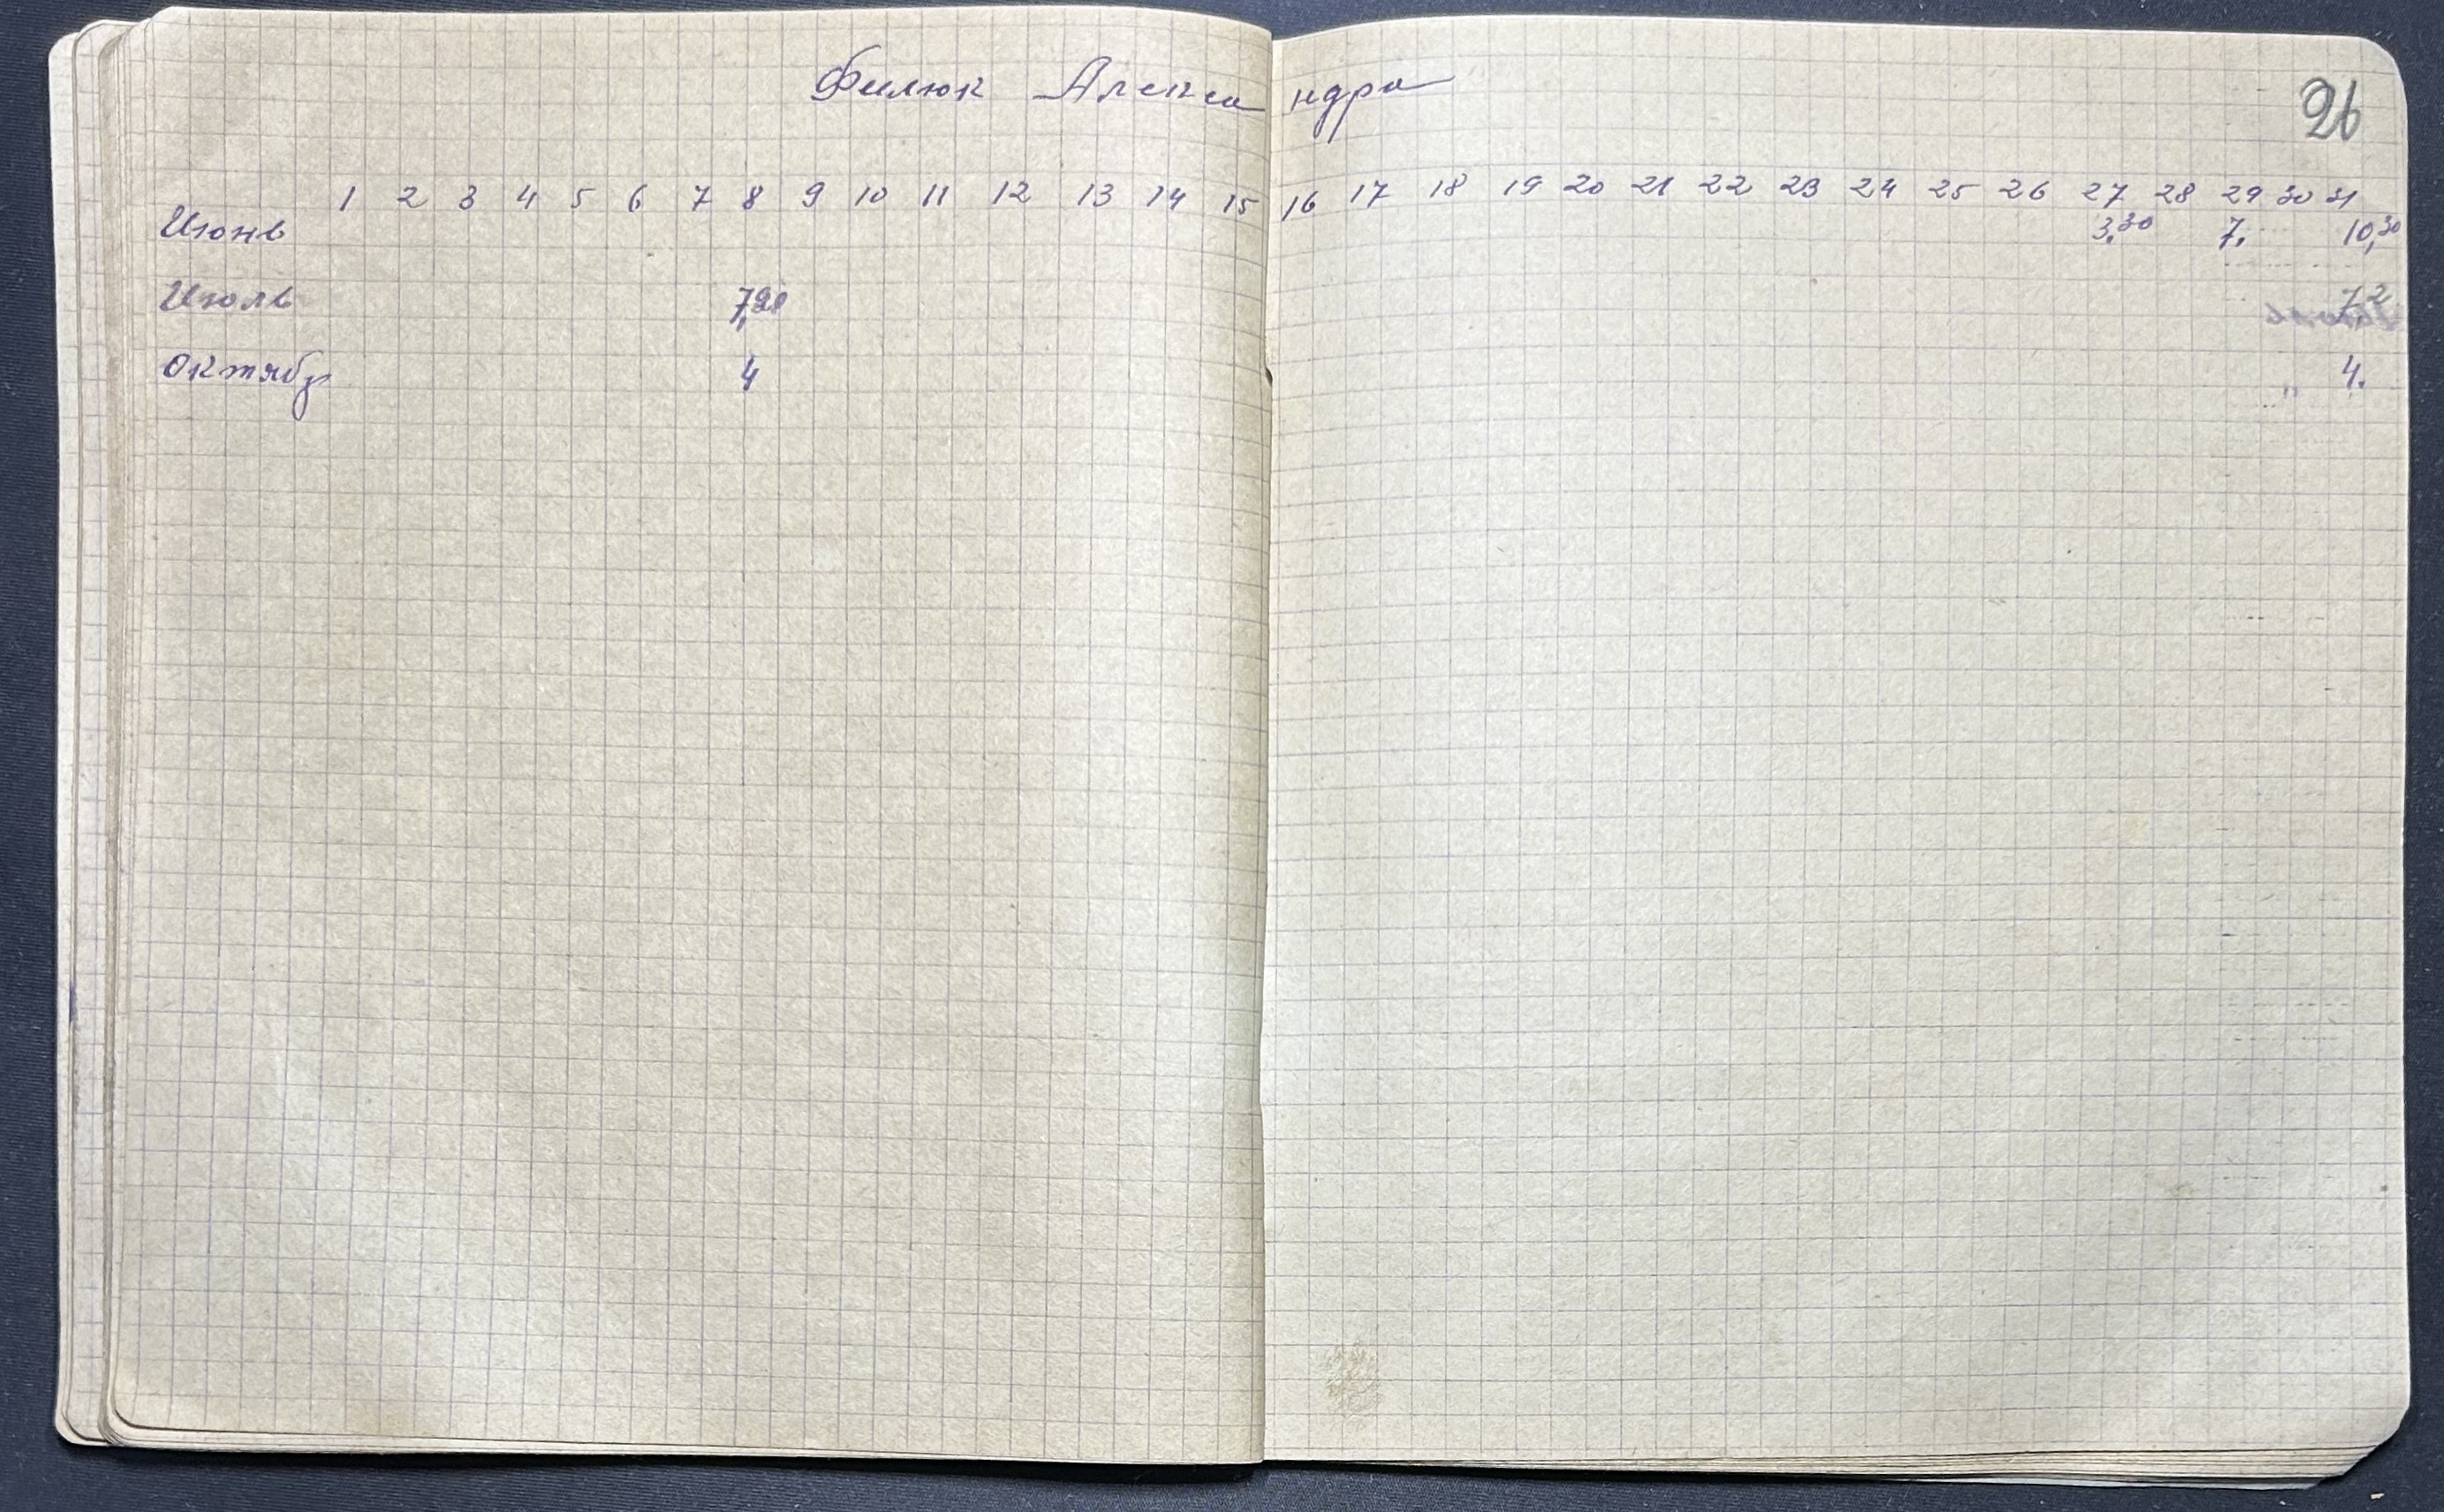 Филюк Александра
26
1 2 3 4 5 6 7 8 9 10 11 12 13 14 15 16 17 18 19 20 21 22 23 24 25 26 27 28 29 30 31
Июнь 3,30 7. 10,30
Июль
Октябр 4 " 4.